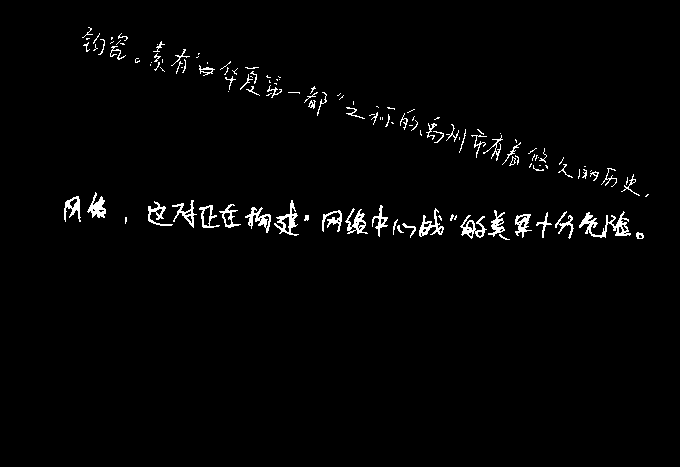 钧瓷。素有“华夏第一都”之称的禹州市有着悠久的历史,
网络,这对正在构建“网络中心战”的美军十分危险。